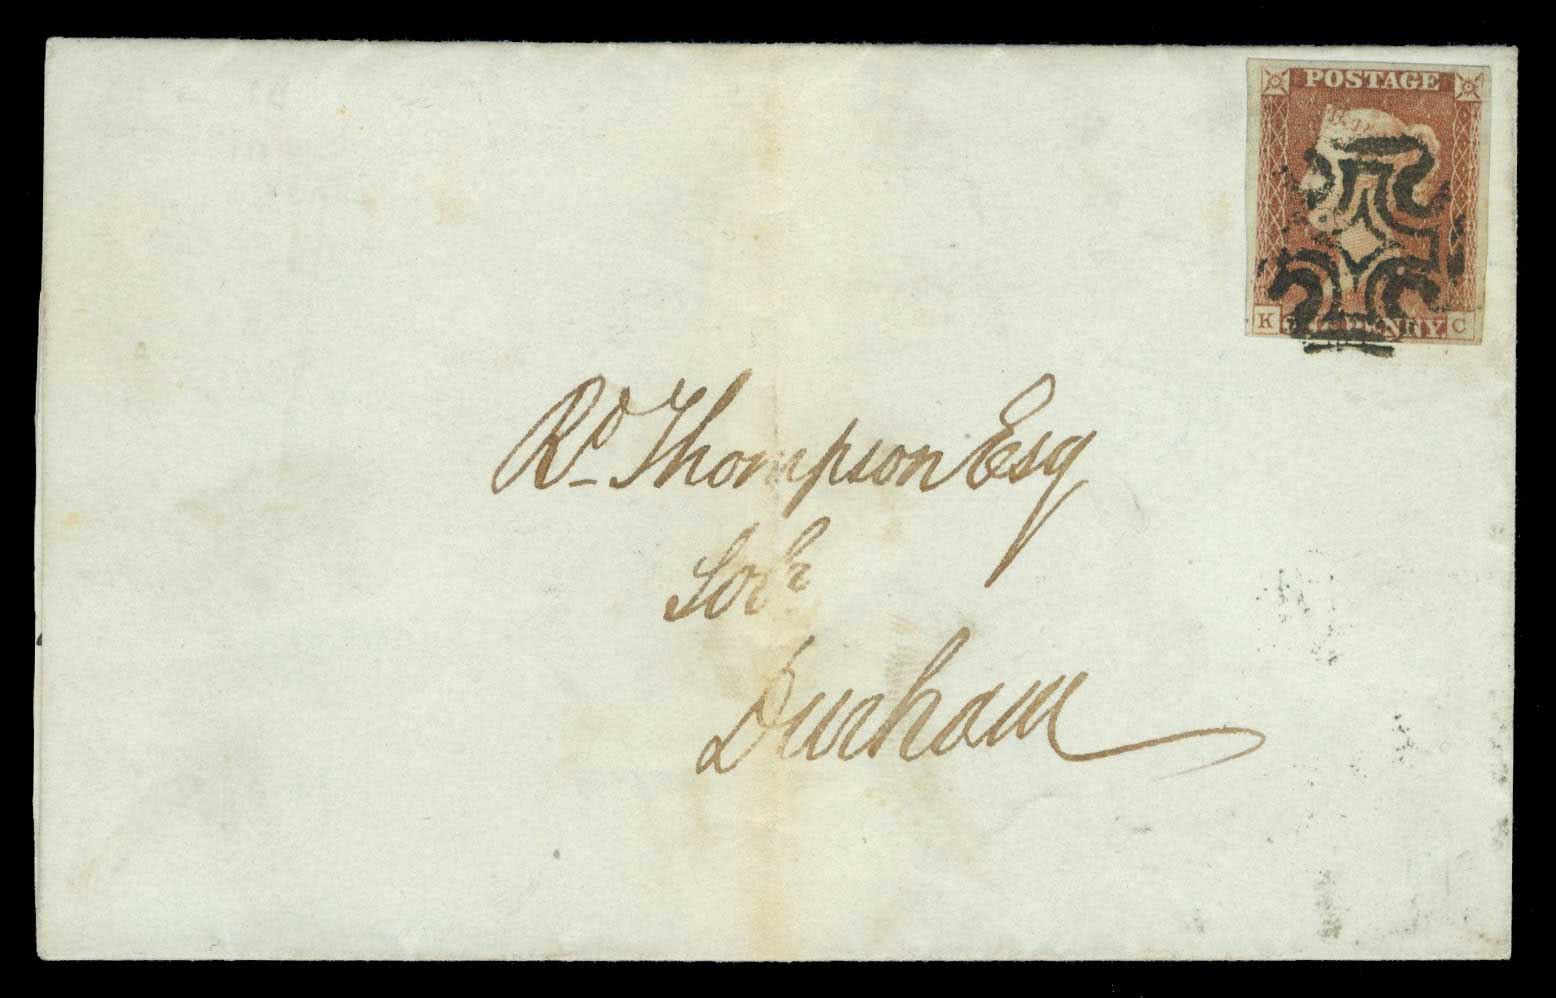 POSTAGE
K ONE PENNY C
Rd Thompson Esq
Solr
Durham